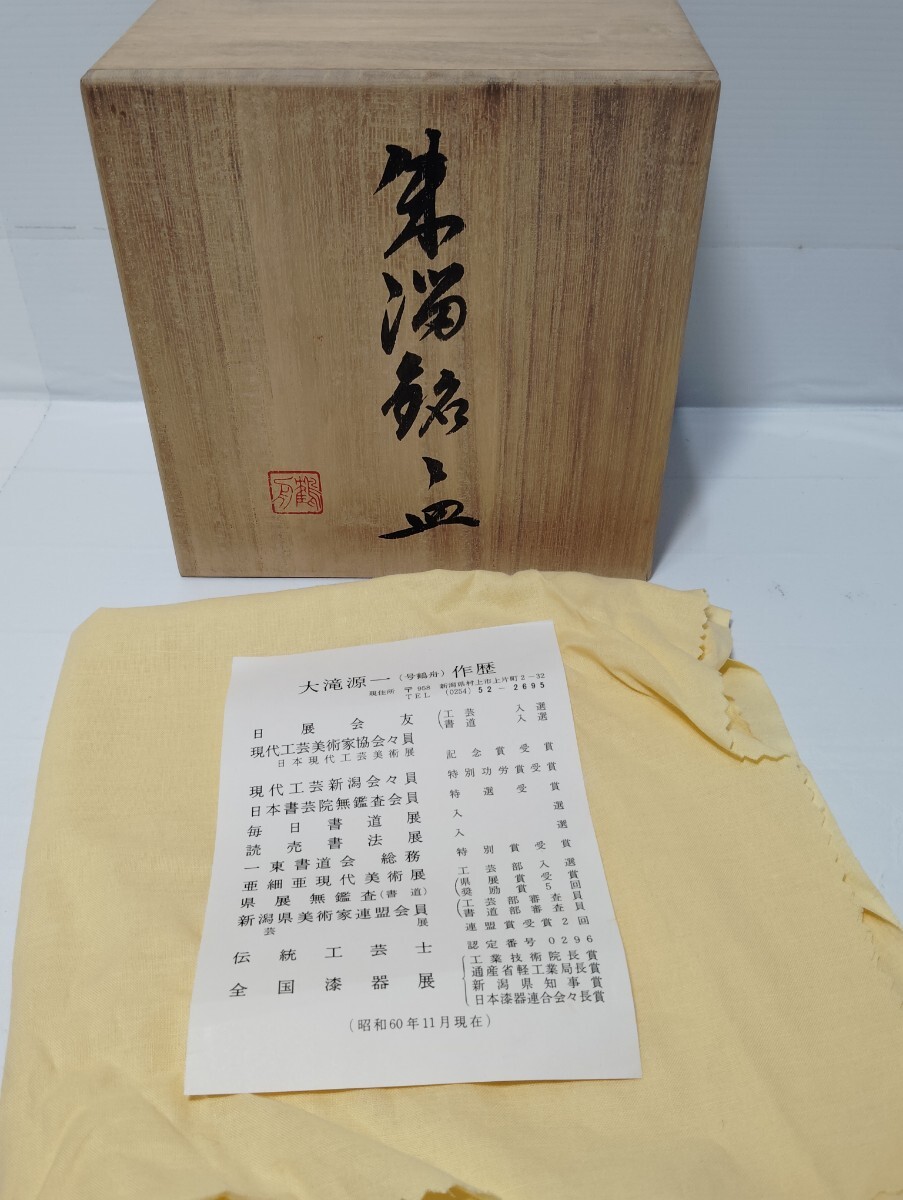 朱溜銘々皿
鶴舟
大滝源一（号鶴舟）作歴
現住所 〒958 新潟県村上市上片町2−32
TEL (0254) 52−2695
日展会友（工芸 入選
書道 入選
現代工芸美術家協会々員
日本現代工芸美術展 記念賞受賞
現代工芸新潟会々員 特別功労賞受賞
日本書芸院無鑑査会員 特選受賞
毎日書道展 入選
読売書法展 入選
一東書道会 総務 特別賞受賞
亜細亜現代美術展 工芸部入選
県展無鑑査(書道)（県展賞受賞
奨励賞5回
新潟県美術家連盟会員（工芸部審査員
書道部審査員
芸展 連盟賞受賞2回
伝統工芸士 認定番号0296
全国漆器展｛工業技術院長賞
通産省軽工業局長賞
新潟県知事賞
日本漆器連合会々長賞
（昭和60年11月現在）